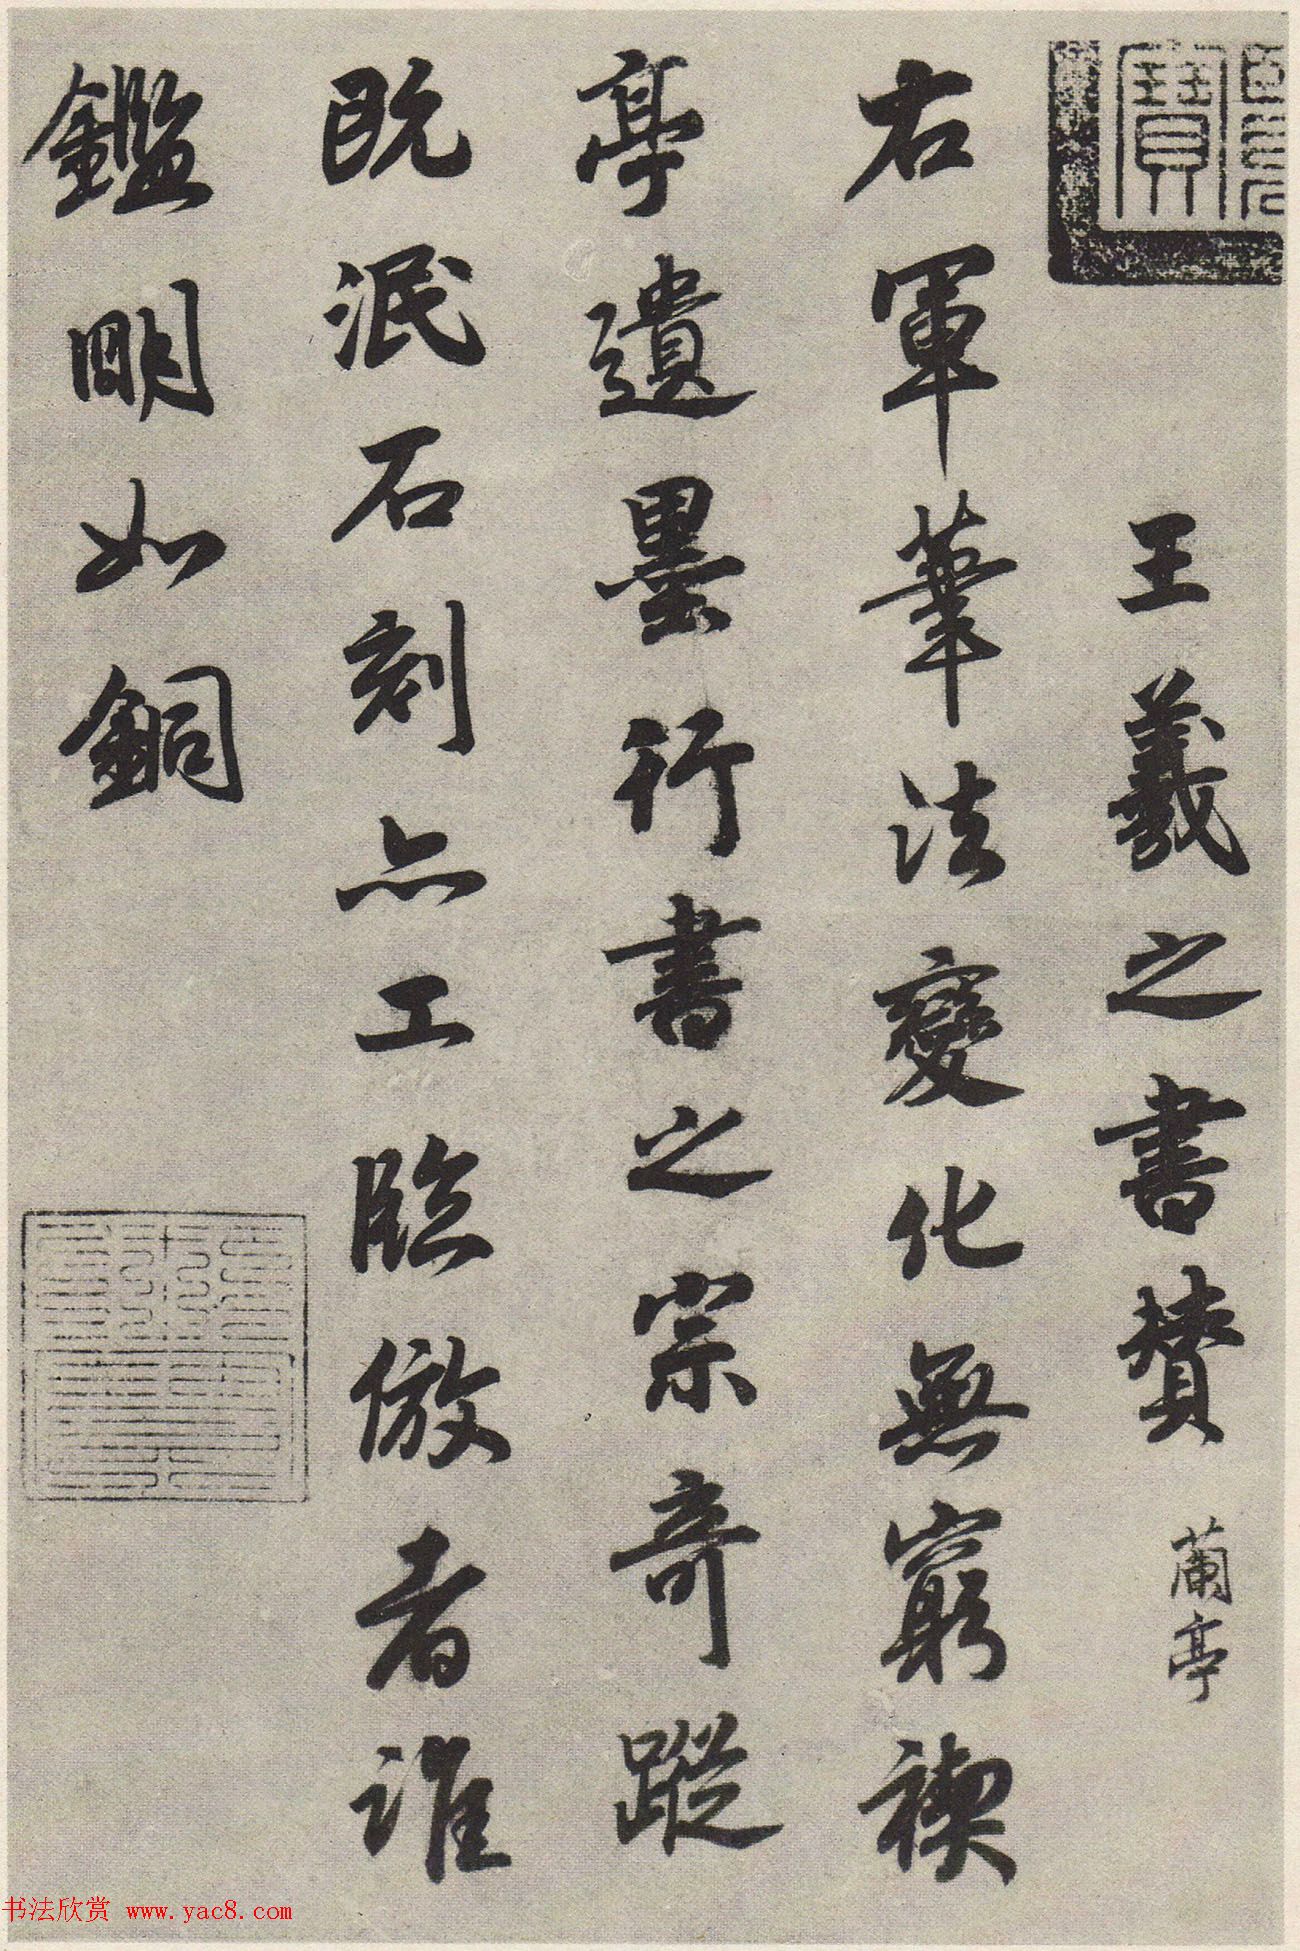 王羲之書贊 蘭亭
右軍筆法變化無窮禊
亭遺墨行書之宗奇蹤
既泯石刻亦工臨倣者誰
鑑明如銅
寶
书法欣赏 www.yac8.com